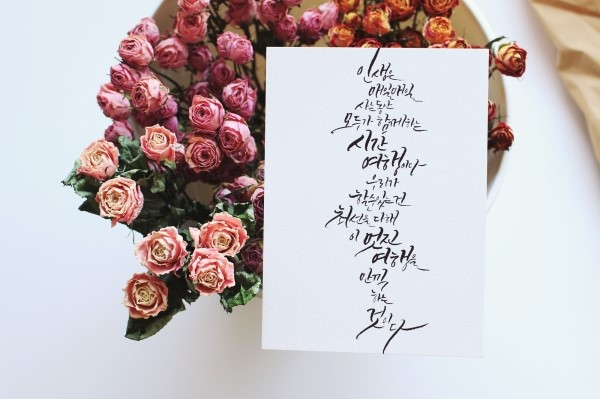 인생은
매일매일
사는동안
모두가 함께하는
시간
여행이다
우리가
할수있는건
최선을 다해
이 멋진
여행을
만끽
하는
것이다